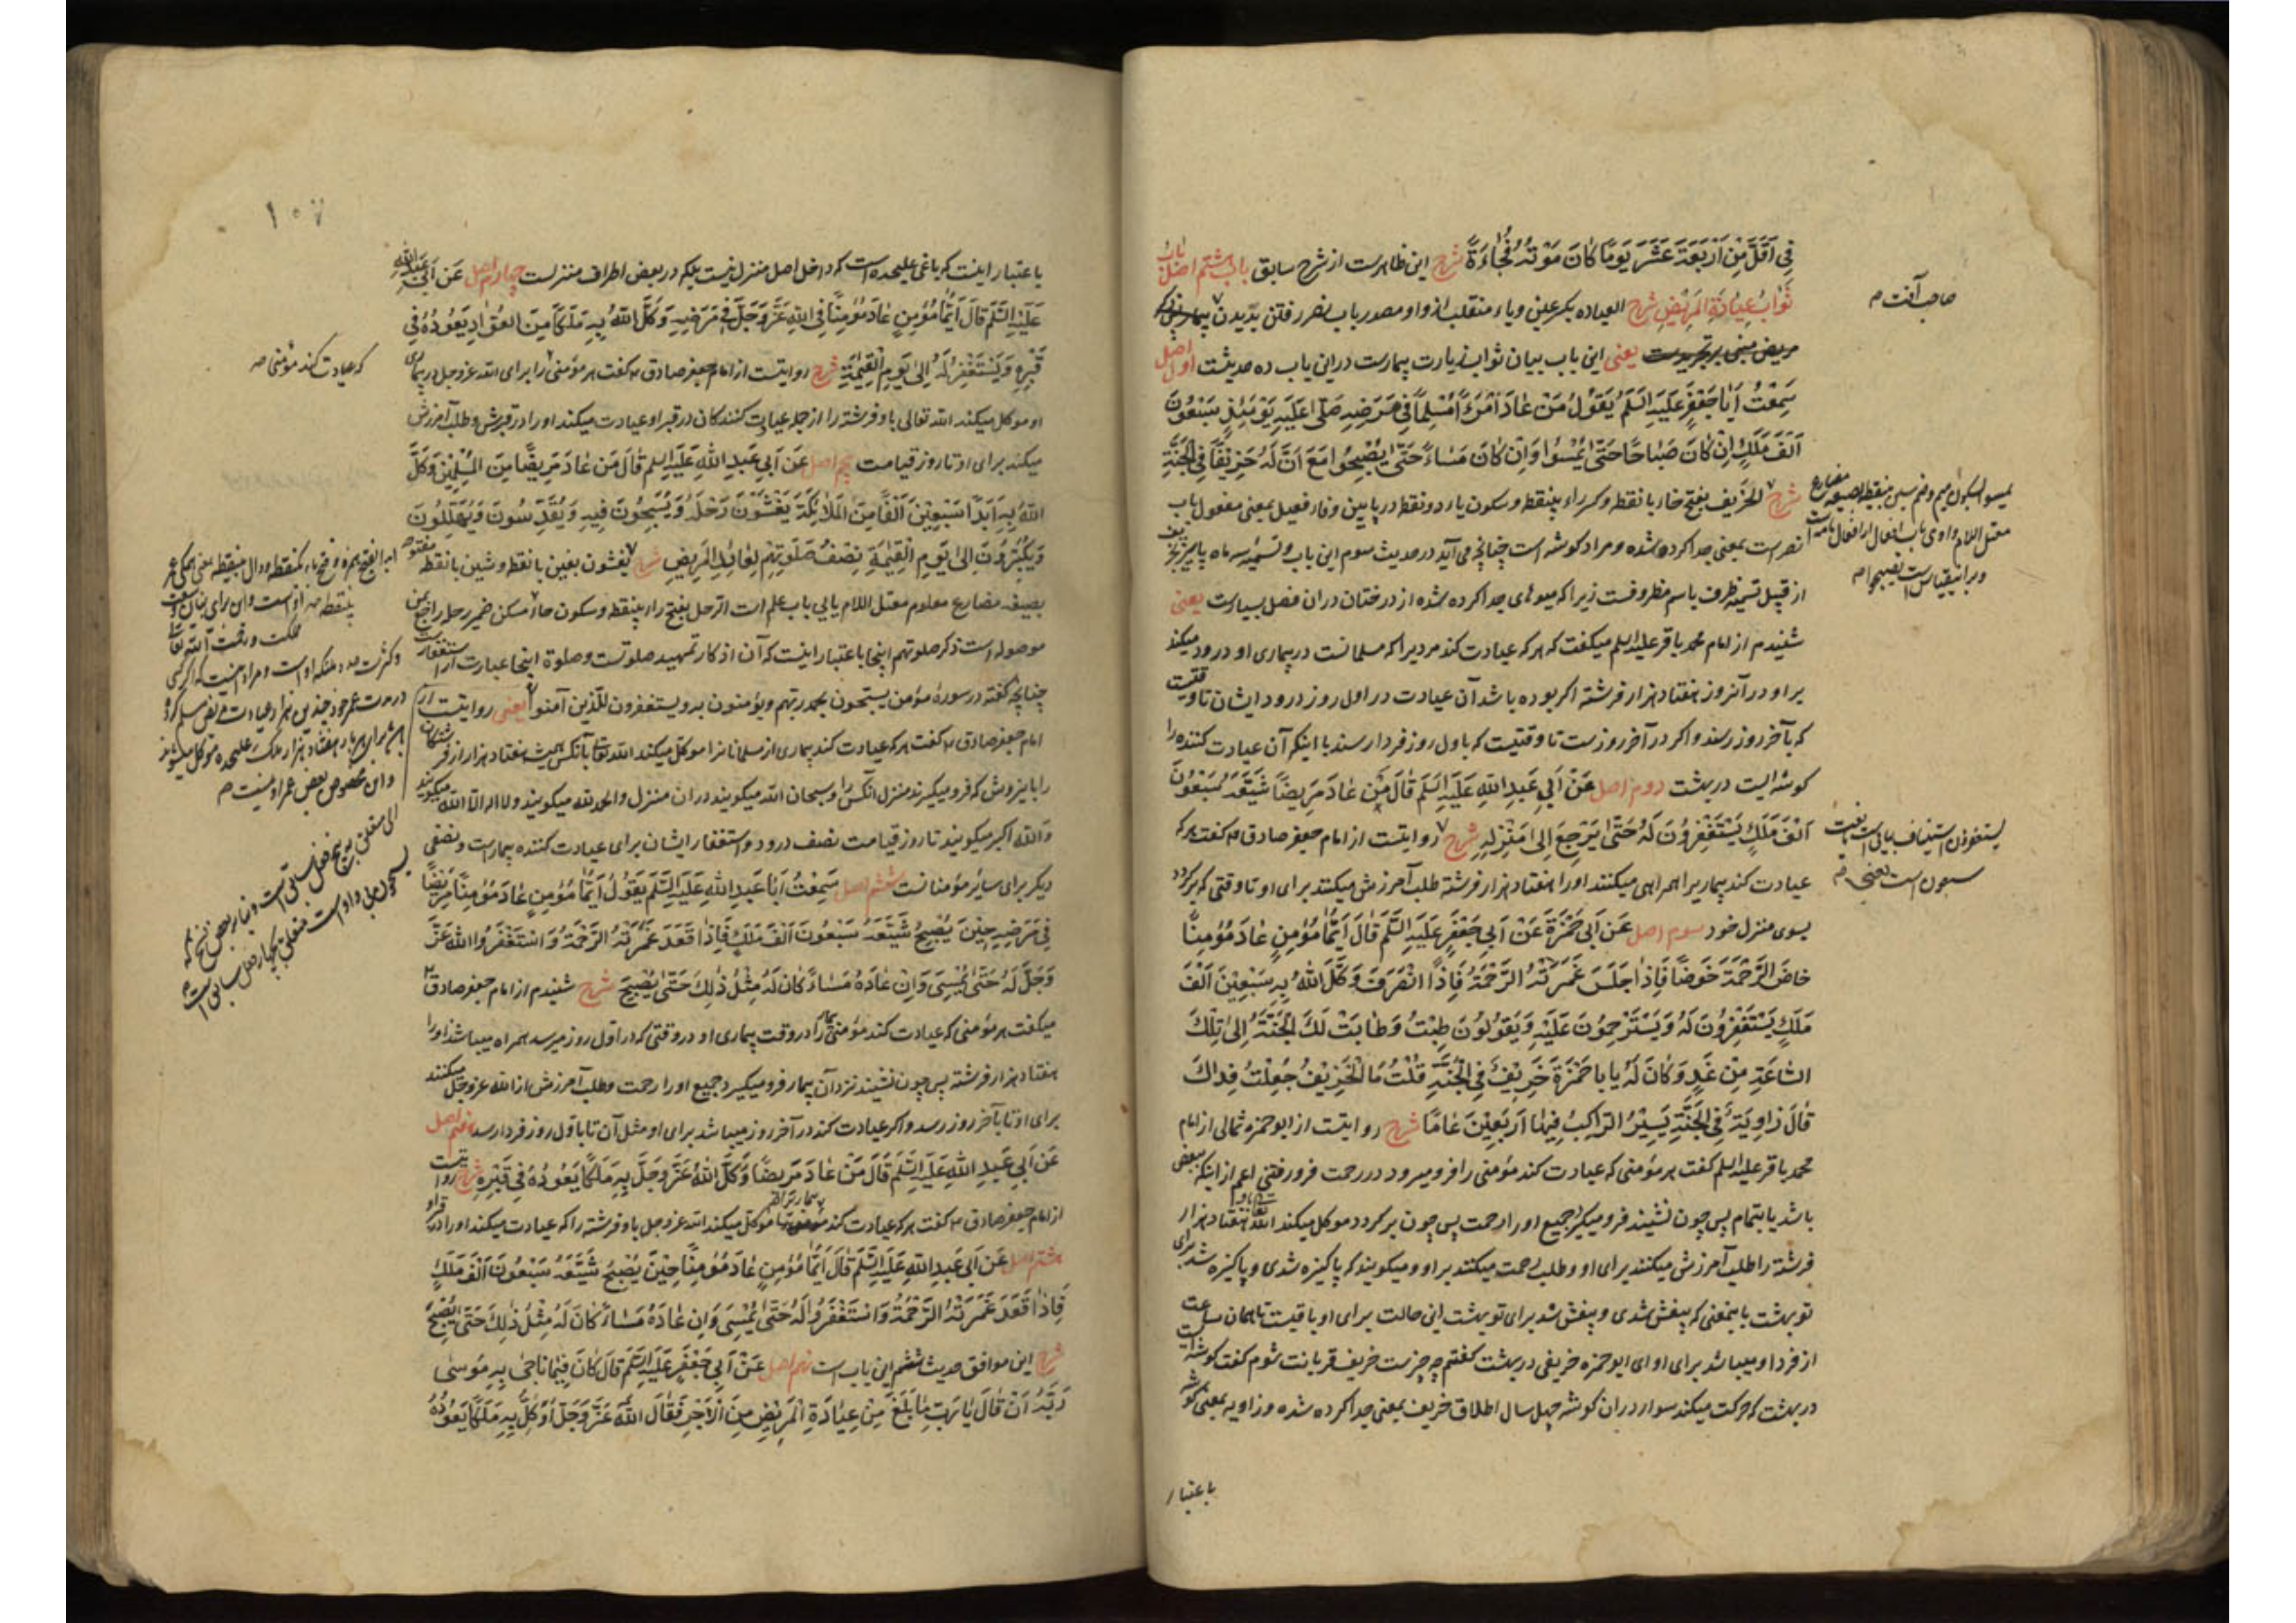 فِي أَقَلَّ مِنْ أَرْبَعَةَ عَشَرَ يَوْمًا كَانَ مَوْتُهُ فُجَاءَةً شرح این ظاهرست از شرح سابق باب هشتم اصل باب
ثَوَابِ عِيَادَةِ الْمَرِيضِ شرح العیاده بکسر عین و یاء منقلب از واو مصدر باب نصر رفتن بدیدن بیمار
یعنی این باب بیان ثواب زیارت بیمارست درین باب ده حدیثست اصل اول
سَمِعْتُ أَبَا جَعْفَرٍ عَلَيْهِ السَّلَم يَقُولُ مَنْ عَادَ امْرَءًا مُسْلِمًا فِي مَرَضِهِ صَلَّى عَلَيْهِ يَوْمَئِذٍ سَبْعُونَ
أَلْفَ مَلَكٍ إِنْ كَانَ صَبَاحًا حَتَّى يُمْسُوا وَإِنْ كَانَ مَسَاءً حَتَّى يُصْبِحُوا مَعَ أَنَّ لَهُ خَرِيفًا فِي الْجَنَّةِ
شرح الخریف بفتح خاء با نقطه و کسر راء بینقطه و سکون یاء دو نقطه در پایین و فاء فعیل بمعنی مفعول باب
نصرست بمعنی جدا کرده شده و مراد کوشه است چنانچه می آید در حدیث سوم این باب و تسمیه سه ماه پاییز بخریف
از قبیل تسمیه ظرف باسم مظروفست زیرا که میوهای جدا کرده شده از درختان در ان فصل بسیارست یعنی
شنیدم از امام محمد باقر علیه السلم میکفت که هر که عیادت کند مردیرا که مسلمانست در بیماری او درود میکند
براو در آنروز هفتاد هزار فرشته اکر بوده باشد آن عیادت در اول روز درود ایشان تا وقتیست
که بآخر روز رسند و اکر در آخر روزست تا وقتیست که باول روز فردا رسند با اینکه آن عیادت کننده را
کوشه ایست در بهشت دوم اصل عَنْ أَبِي عَبْدِ اللهِ عَلَيْهِ السَّلَم قَالَ مَنْ عَادَ مَرِيضًا شَيَّعَهُ سَبْعُونَ
أَلْفَ مَلَكٍ يَسْتَغْفِرُونَ لَهُ حَتَّى يَرْجِعَ إِلَى مَنْزِلِهِ شرح روایتست از امام جعفر صادق ع کفت هر که
عیادت کند بیماریرا همراهی میکنند اورا هفتاد هزار فرشته طلب آمرزش میکنند برای او تا وقتی که برکردد
بسوی منزل خود سوم اصل عَنْ أَبِي حَمْزَةَ عَنْ أَبِي جَعْفَرٍ عَلَيْهِ السَّلَم قَالَ أَيُّمَا مُؤْمِنٍ عَادَ مُؤْمِنًا
خَاضَ الرَّحْمَةَ خَوْضًا فَإِذَا جَلَسَ غَمَرَتْهُ الرَّحْمَةُ فَإِذَا انْصَرَفَ وَكَّلَ اللهُ بِهِ سَبْعِينَ أَلْفَ
مَلَكٍ يَسْتَغْفِرُونَ لَهُ وَيَسْتَرْحِمُونَ عَلَيْهِ وَيَقُولُونَ طِبْتَ وَطَابَتْ لَكَ الْجَنَّةُ إِلَى تِلْكَ
السَّاعَةِ مِنْ غَدٍ وَكَانَ لَهُ يَا بَا حَمْزَةَ خَرِيفٌ فِي الْجَنَّةِ قُلْتُ مَا الْخَرِيفُ جُعِلْتُ فِدَاكَ
قَالَ زَاوِيَةٌ فِي الْجَنَّةِ يَسِيرُ الرَّاكِبُ فِيهَا أَرْبَعِينَ عَامًا شرح روایتست از ابو حمزه ثمالی از امام
محمد باقر علیه السلم کفت هر مؤمنی که عیادت کند مؤمنی را فرو میرود در رحمت فرو رفتنی اعم از اینکه ببعض
باشد یا بتمام پس چون نشیند فرو میکیرد جمیع اورا رحمت پس چون برکردد موکل میکند الله تعالی باو هفتاد هزار
فرشته را طلب آمرزش میکنند برای او و طلب رحمت میکنند براو و میکویند که پاکیزه شدی و پاکیزه شد برای
تو بهشت باینمعنی که بیغش شدی و بیغش شد برای تو بهشت این حالت برای او باقیست تا همان ساعت
از فردا و میباشد برای او ای ابو حمزه خریفی در بهشت کفتم چه چیزست خریف قربانت شوم کفت کوشه ایست
در بهشت که حرکت میکند سوار در ان کوشه چهل سال اطلاق خریف بمعنی جدا کرده شده و زاویه بمعنی کوشه
باعتبار
صاحب آفت م
یستغفرون استیناف بیانی است یا نعت
سبعون است یعنی م
۱۰۷
باعتبار اینست که باغی علیحده است که داخل اصل منزل نیست بلکه در بعض اطراف منزلست چهارم اصل عَنْ أَبِي عَبْدِ اللهِ
عَلَيْهِ السَّلَم قَالَ أَيُّمَا مُؤْمِنٍ عَادَ مُؤْمِنًا فِي اللهِ عَزَّ وَجَلَّ فِي مَرَضِهِ وَكَّلَ اللهُ بِهِ مَلَكًا مِنَ الْعُوَّادِ يَعُودُهُ فِي
قَبْرِهِ وَيَسْتَغْفِرُ لَهُ إِلَى يَوْمِ الْقِيَمَةِ شرح روایتست از امام جعفر صادق ع کفت هر مؤمنی را برای الله عز و جل در بیماری
او موکل میکند الله تعالی باو فرشته را از جمله عیادت کنندکان در قبر او عیادت میکند اورا در قبرش و طلب آمرزش
میکند برای او تا روز قیامت پنجم اصل عَنْ أَبِي عَبْدِ اللهِ عَلَيْهِ السَّلَم قَالَ مَنْ عَادَ مَرِيضًا مِنَ الْمُسْلِمِينَ وَكَّلَ
اللهُ بِهِ أَبَدًا سَبْعِينَ أَلْفًا مِنَ الْمَلَائِكَةِ يَغْشَوْنَ رَحْلَهُ وَيُسَبِّحُونَ فِيهِ وَيُقَدِّسُونَ وَيُهَلِّلُونَ
وَيُكَبِّرُونَ إِلَى يَوْمِ الْقِيَمَةِ نِصْفُ صَلَوتِهِمْ لِعَائِدِ الْمَرِيضِ شرح یغشون بغین با نقطه و شین با نقطه مفتوحه
بصیغه مضارع معلوم معتل اللام یایی باب علم است الرحل بفتح راء بینقطه و سکون حاء مسکن ضمیر رحله راجع بمن
موصوله است ذکر صلوتهم اینجا باعتبار اینست که آن اذکار تمهید صلوتست و صلوة اینجا عبارت از استغفارست
چنانچه کفته در سورهٔ مؤمن یسبحون بحمد ربهم ویؤمنون به ویستغفرون للذین آمنوا یعنی روایتست از
امام جعفر صادق ع کفت هر که عیادت کند بیماری از مسلمانانرا موکل میکند الله تعالی بآنکس همیشه هفتاد هزار از فرشتکان
را باینروش که فرو میکیرند منزل آنکس را و سبحان الله میکویند در ان منزل و الحمد لله میکویند و لا اله الا الله میکویند
و الله اکبر میکویند تا روز قیامت نصف درود و استغفار ایشان برای عیادت کننده بیمارست و نصفی
دیکر برای سایر مؤمنانست ششم اصل سَمِعْتُ أَبَا عَبْدِ اللهِ عَلَيْهِ السَّلَم يَقُولُ أَيُّمَا مُؤْمِنٍ عَادَ مُؤْمِنًا مَرِيضًا
فِي مَرَضِهِ حِينَ يُصْبِحُ شَيَّعَهُ سَبْعُونَ أَلْفَ مَلَكٍ فَإِذَا قَعَدَ غَمَرَتْهُ الرَّحْمَةُ وَاسْتَغْفَرُوا اللهَ عَزَّ
وَجَلَّ لَهُ حَتَّى يُمْسِيَ وَإِنْ عَادَهُ مَسَاءً كَانَ لَهُ مِثْلُ ذَلِكَ حَتَّى يُصْبِحَ شرح شنیدم از امام جعفر صادق ع
میکفت هر مؤمنی که عیادت کند مؤمنی بیمار را در وقت بیماری او در وقتی که در اول روز میرسد همراه میباشد اورا
هفتاد هزار فرشته پس چون نشیند نزد آن بیمار فرو میکیرد جمیع اورا رحمت و طلب آمرزش از الله عز و جل میکنند
برای او تا بآخر روز رسد و اکر عیادت کند در آخر روز میباشد برای او مثل آن تا باول روز فردا رسد هفتم اصل
عَنْ أَبِي عَبْدِ اللهِ عَلَيْهِ السَّلَم قَالَ مَنْ عَادَ مَرِيضًا وَكَّلَ اللهُ عَزَّ وَجَلَّ بِهِ مَلَكًا يَعُودُهُ فِي قَبْرِهِ شرح روایتست
از امام جعفر صادق ع کفت هر که عیادت کند بیماریرا موکل میکند الله عز و جل باو فرشته را که عیادت میکند اورا در قبر او
هشتم اصل عَنْ أَبِي عَبْدِ اللهِ عَلَيْهِ السَّلَم قَالَ أَيُّمَا مُؤْمِنٍ عَادَ مُؤْمِنًا حِينَ يُصْبِحُ شَيَّعَهُ سَبْعُونَ أَلْفَ مَلَكٍ
فَإِذَا قَعَدَ غَمَرَتْهُ الرَّحْمَةُ وَاسْتَغْفَرُوا لَهُ حَتَّى يُمْسِيَ وَإِنْ عَادَهُ مَسَاءً كَانَ لَهُ مِثْلُ ذَلِكَ حَتَّى يُصْبِحَ
شرح این موافق حدیث ششم این باب است نهم اصل عَنْ أَبِي جَعْفَرٍ عَلَيْهِ السَّلَم قَالَ كَانَ فِيمَا نَاجَى بِهِ مُوسَى
رَبَّهُ أَنْ قَالَ يَا رَبِّ مَا بَلَغَ مِنْ عِيَادَةِ الْمَرِيضِ مِنَ الْأَجْرِ فَقَالَ اللهُ عَزَّ وَجَلَّ أُوَكِّلُ بِهِ مَلَكًا يَعُودُهُ
که عیادت کند مؤمنی صح